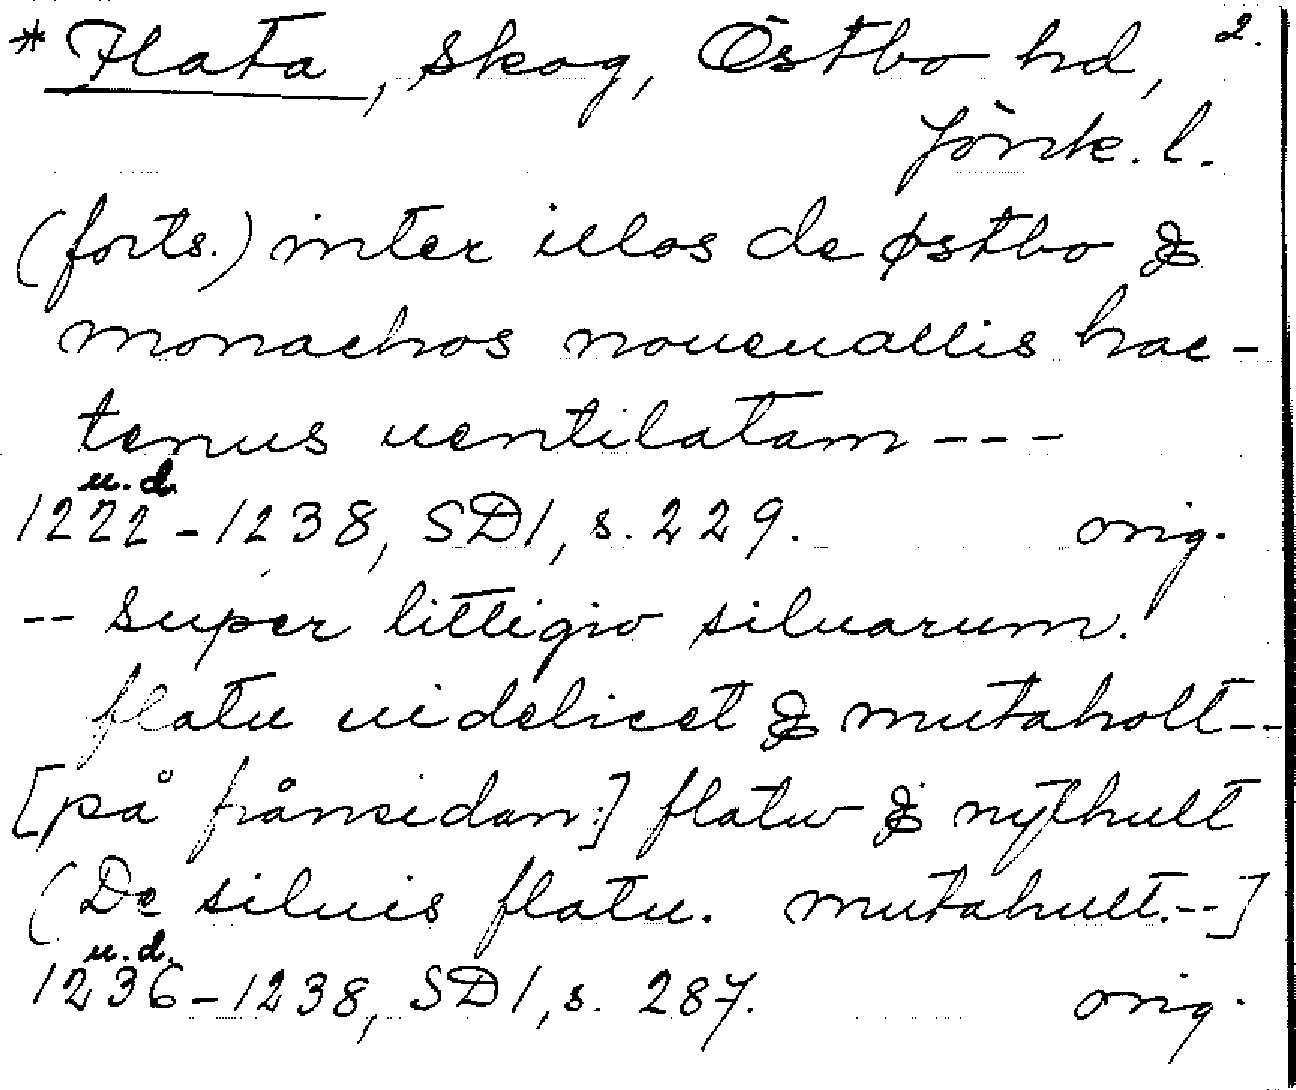 *Flata, skog, Östbo hd, 2.
Jönk. l.
(forts.) inter illos de østbo &
monachos noueuallis hac-
tenus uentilatam ---
u.d.
1222-1238, SD1, s. 229. orig.
-- super littigio siluarum.
flatu uidelicet & mutaholt--
[på frånsidan:] flatu & nythult
(De siluis flatu. mutahult.--]
u.d.
1236-1238, SD1, s. 287. orig.